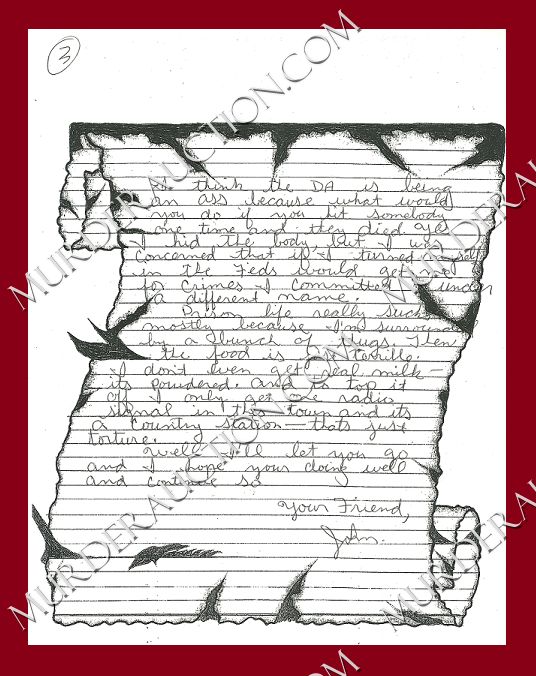 3
I think the DA is being
an ass because what would
you do if you hit somebody
one time and they died. Yes
I hid the body, but I was
concerned that if I turned myself
in the Feds would get me
for crimes I committed under
a different name.
Prison life really sucks
mostly because I'm surrounded
by a bunch of thugs. Then
the food is terrible.
I don't even get real milk—
its powdered. And to top it
off I only get one radio
signal in this town and its
a country station—thats just
torture.
Well I'll let you go
and I hope your doing well
and continue so
Your Friend,
John.
MURDERAUCTION.COM
MURDERAUCTION.COM
MURDERAUCTION.COM
MURDERAUCTION.COM
MURDERAUCTION.COM